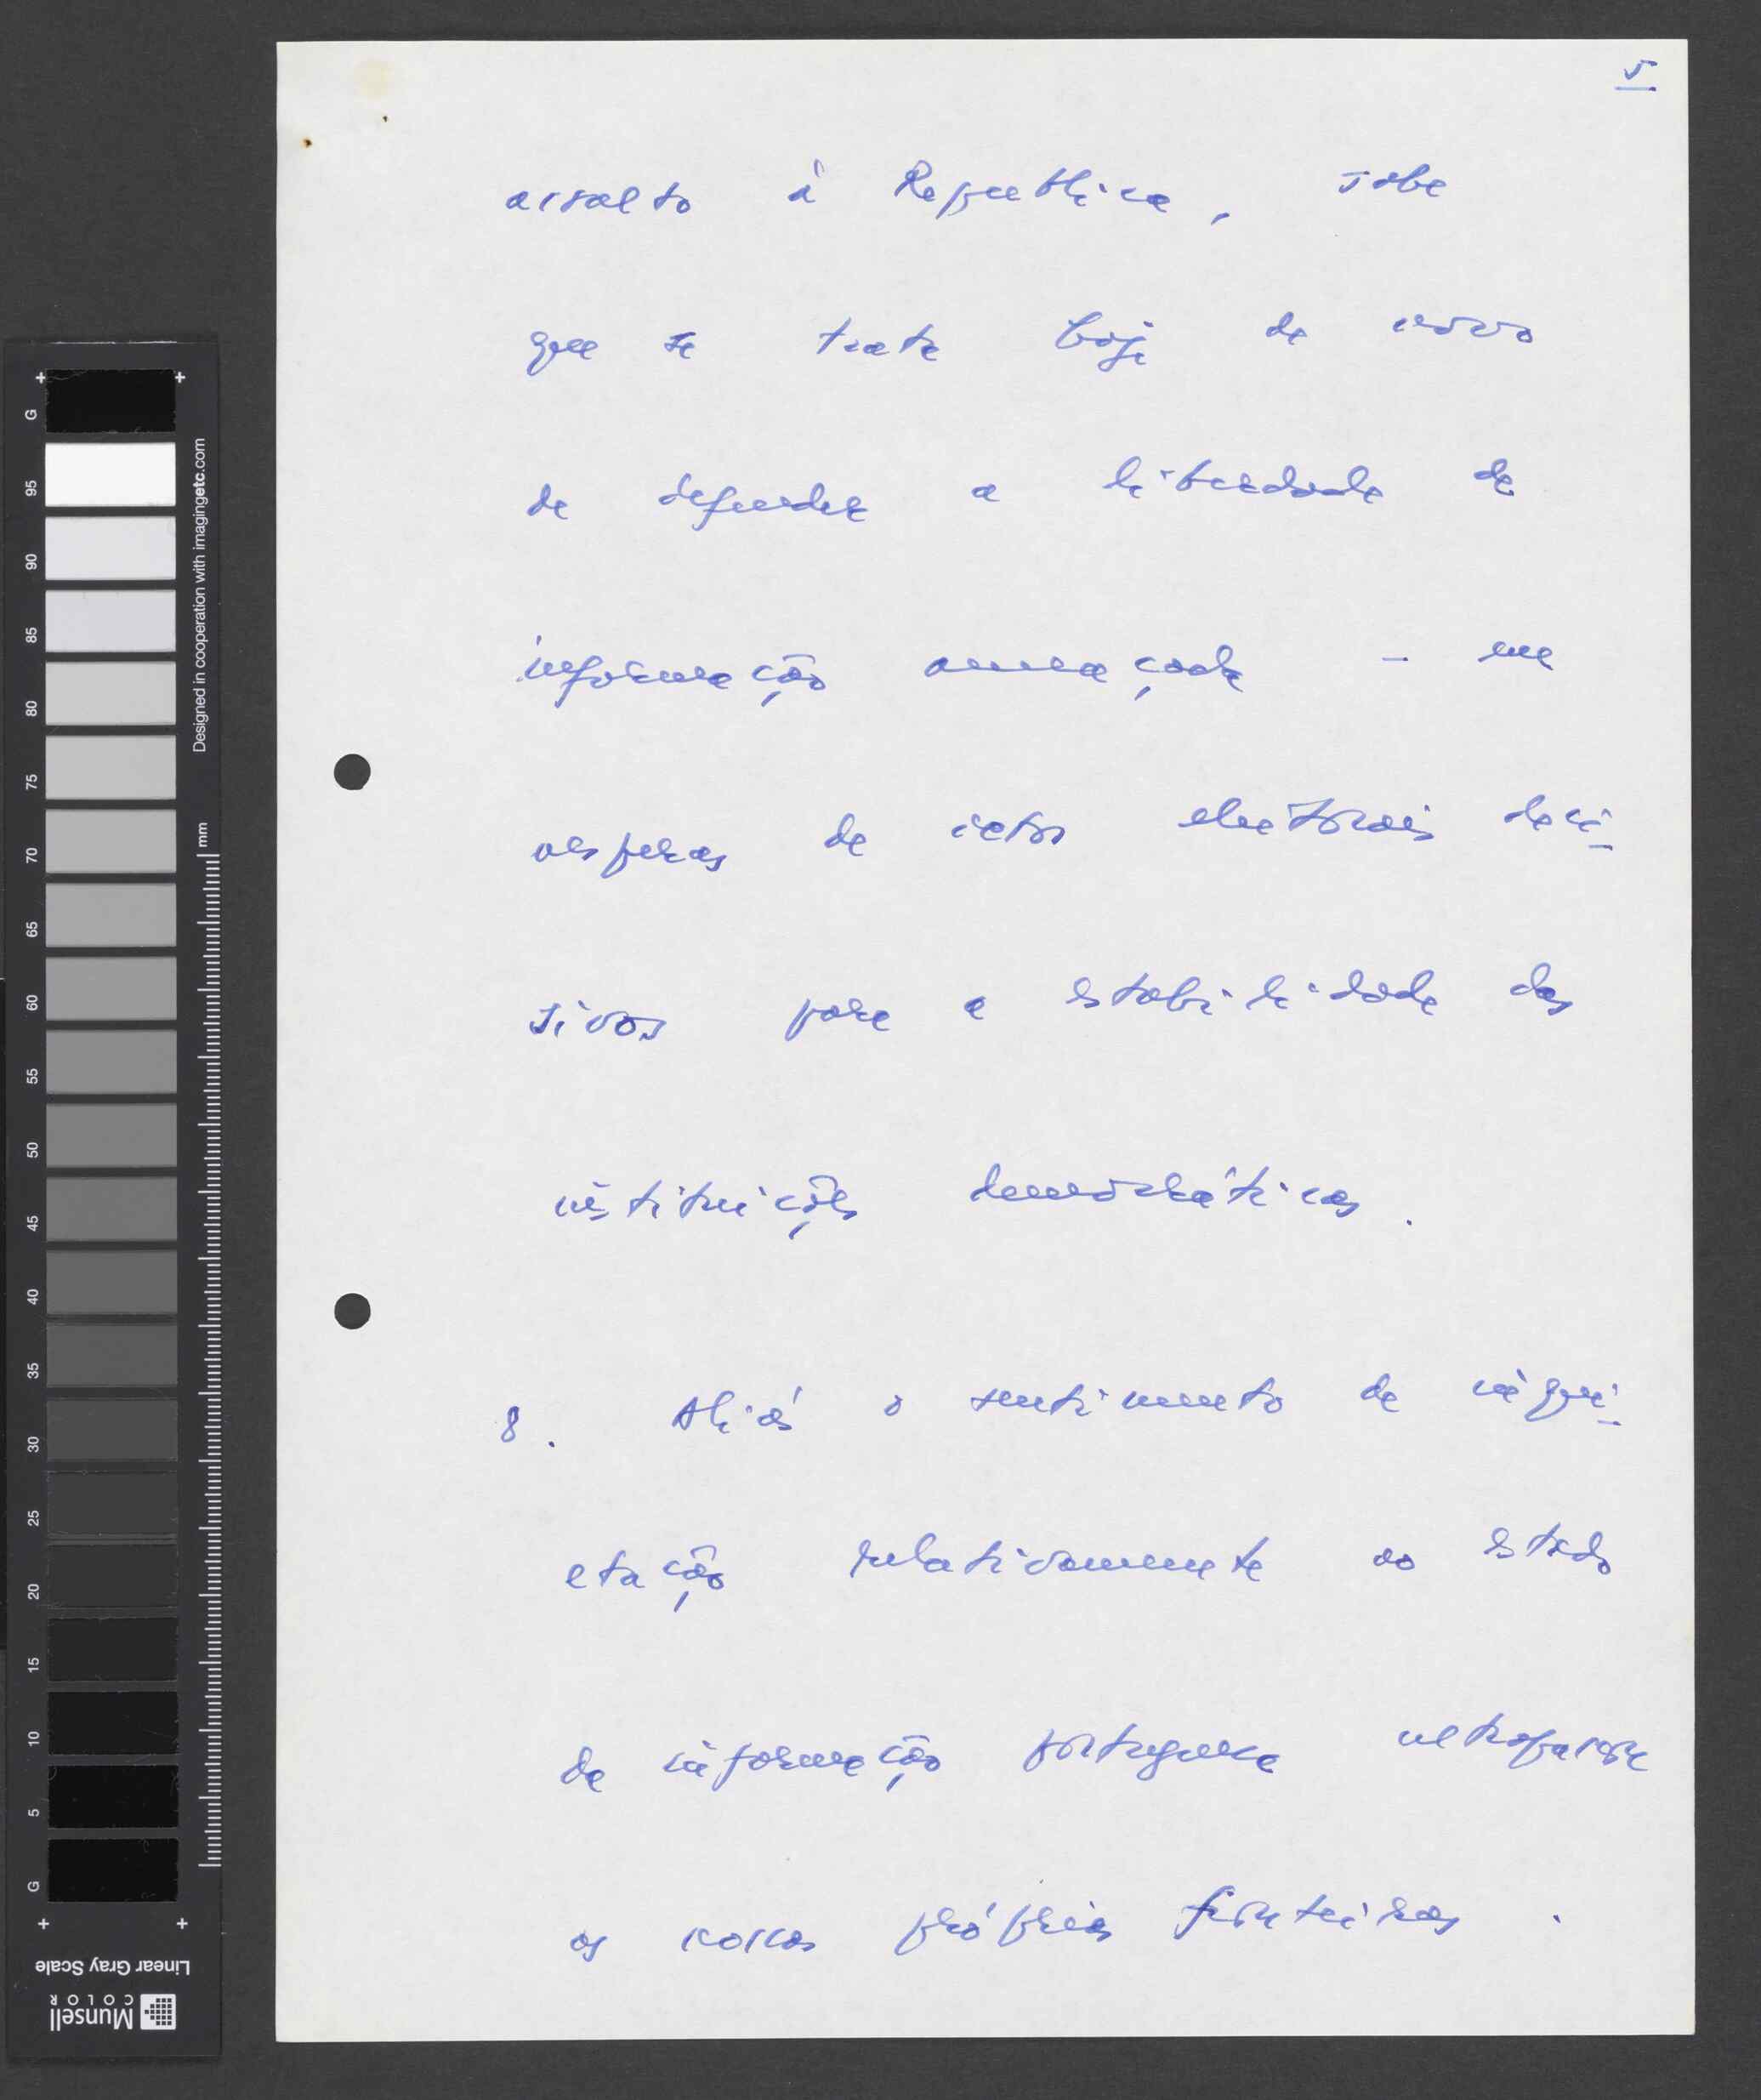 5
assalto à República, sabe
que se trata hoje de novo
de defender a liberdade de
informação ameaçada - em
vésperas de actos eleitorais deci-
sivos para a estabilidade das
instituições democráticas.
8. Aliás o sentimento de inqui-
etação relativamente ao estado
da informação portuguesa ultrapassa
as nossas próprias fronteiras.
G 95 90 85 80 75 70 65 60 55 50 45 40 35 30 25 20 15 10 5 G
mm
Designed in cooperation with imagingetc.com
Linear Gray Scale
Munsell
COLOR